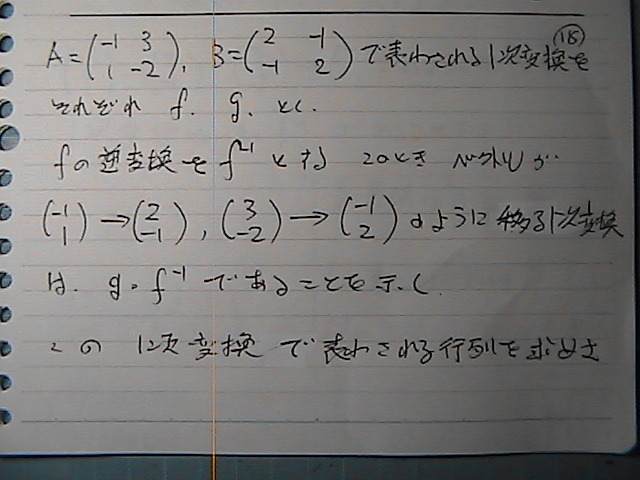 ⑮
A=(-1 3 / 1 -2), B=(2 -1 / -1 2)で表わされる1次変換を
それぞれ f. g. とし.
fの逆変換を f⁻¹ とする このとき ベクトルが
(-1 / 1)→(2 / -1), (3 / -2)→(-1 / 2)のように移る1次変換
は. g∘f⁻¹ であることを示し
この 1次変換で表わされる行列を求めよ